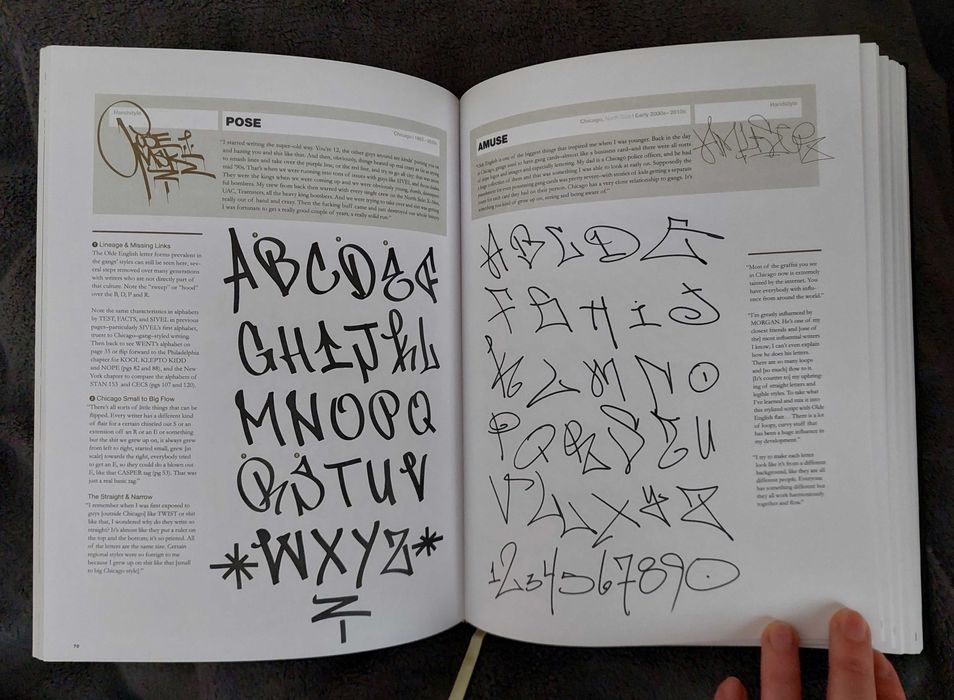 Handstyle
POSE
Chicago | 1992–2010s
"I started writing the super-old way. You're 12, the other guys around are kinda' putting you on
and hazing you and shit like that. And then, obviously, things heated up real easy as far as trying
to smash lines and take over the purple line, or the red line, and try to go all city; that was
mid '90s. That's when we were running into tons of issues with guys like SIVEL and those dudes.
They were the kings when we were coming up and we were obviously young, dumb,
ful bombers. My crew from back then warred with every single crew on the North Side: X-Men,
UAC, Transmen, all the heavy king bombers. And we were trying to take over and shit was getting
really out of hand and crazy. Then the fucking buff came and just destroyed our whole history.
I was fortunate to get a really good couple of years, a really solid run."
❶ Lineage & Missing Links
The Olde English letter forms prevalent in
the gangs' styles can still be seen here, sev-
eral steps removed over many generations
with writers who are not directly part of
that culture. Note the "sweep" or "hood"
over the B, D, P and R.
Note the same characteristics in alphabets
by TEST, FACTS, and SIVEL in previous
pages–particularly SIVEL's first alphabet,
truest to Chicago–gang–styled writing.
Then back to see WENT's alphabet on
page 35 or flip forward to the Philadelphia
chapter for KOOL KLEPTO KIDD
and NOPE (pgs 82 and 88), and the New
York chapter to compare the alphabets of
STAN 153 and CECS (pgs 107 and 120).
❷ Chicago Small to Big Flow
"There's all sorts of little things that can be
flipped. Every writer has a different kind
of flair for a certain chiseled out S or an
extension off an R or an E or something
but the shit we grew up on, it always grew
from left to right, started small, grew [in
scale] towards the right, everybody tried
to get an E, so they could do a blown out
E, like that CASPER tag (pg 53). That was
just a real basic tag."
The Straight & Narrow
"I remember when I was first exposed to
guys [outside Chicago] like TWIST or shit
like that, I wondered why do they write so
straight? It's almost like they put a ruler on
the top and the bottom; it's so printed. All
of the letters are the same size. Certain
regional styles were so foreign to me
because I grew up on shit like that [small
to big Chicago style]."
ABCDEF
GHIJKL
MNOPQ
RSTUV
*WXYZ*
Z
70
Handstyle
AMUSE
Chicago, North Side | Early 2000s–2010s
AMUSE
"Old English is one of the biggest things that inspired me when I was younger. Back in the day
in Chicago, gangs used to have gang cards–almost like a business card–and there were all sorts
of dope logos and images and especially lettering. My dad is a Chicago police officer, and he had
a huge collection of them and that was something I was able to look at early on. Supposedly the
punishments for even possessing gang cards was pretty severe–with stories of kids getting a separate
count for each card they had on their person. Chicago has a very close relationship to gangs. It's
something you kind of grow up on, seeing and being aware of."
ABCDE
FGHIJ
KLMNO
PQRSTU
VWXYZ
1234567890
"Most of the graffiti you see
in Chicago now is extremely
tainted by the internet. You
have everybody with influ-
ence from around the world."
"I'm greatly influenced by
MORGAN. He's one of my
closest friends and [one of
the] most influential writers
I know; I can't even explain
how he does his letters.
There are so many loops
and [so much] flow to it.
[It's counter to] my upbring-
ing of straight letters and
legible styles. To take what
I've learned and mix it into
this stylized script with Olde
English flair. There is a lot
of loopy, curvy stuff that
has been a huge influence in
my development."
"I try to make each letter
look like it's from a different
background, like they are all
different people. Everyone
has something different but
they all work harmoniously
together and flow."